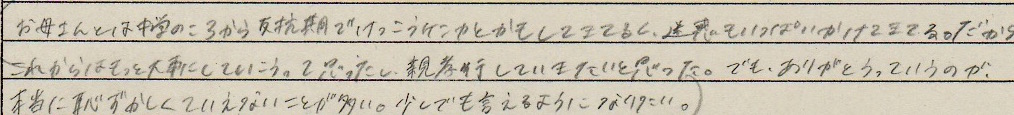 お母さんとは中学のころから反抗期でけっこうケンカとかもしてきてるし、迷惑もいっぱいかけてきてる。だから
これからはもっと大事にしていこうって思ったし、親孝行していきたいと思った。でも、ありがとうっていうのが、
本当に恥ずかしくていえないことが多い。少しでも言えるようになりたい。